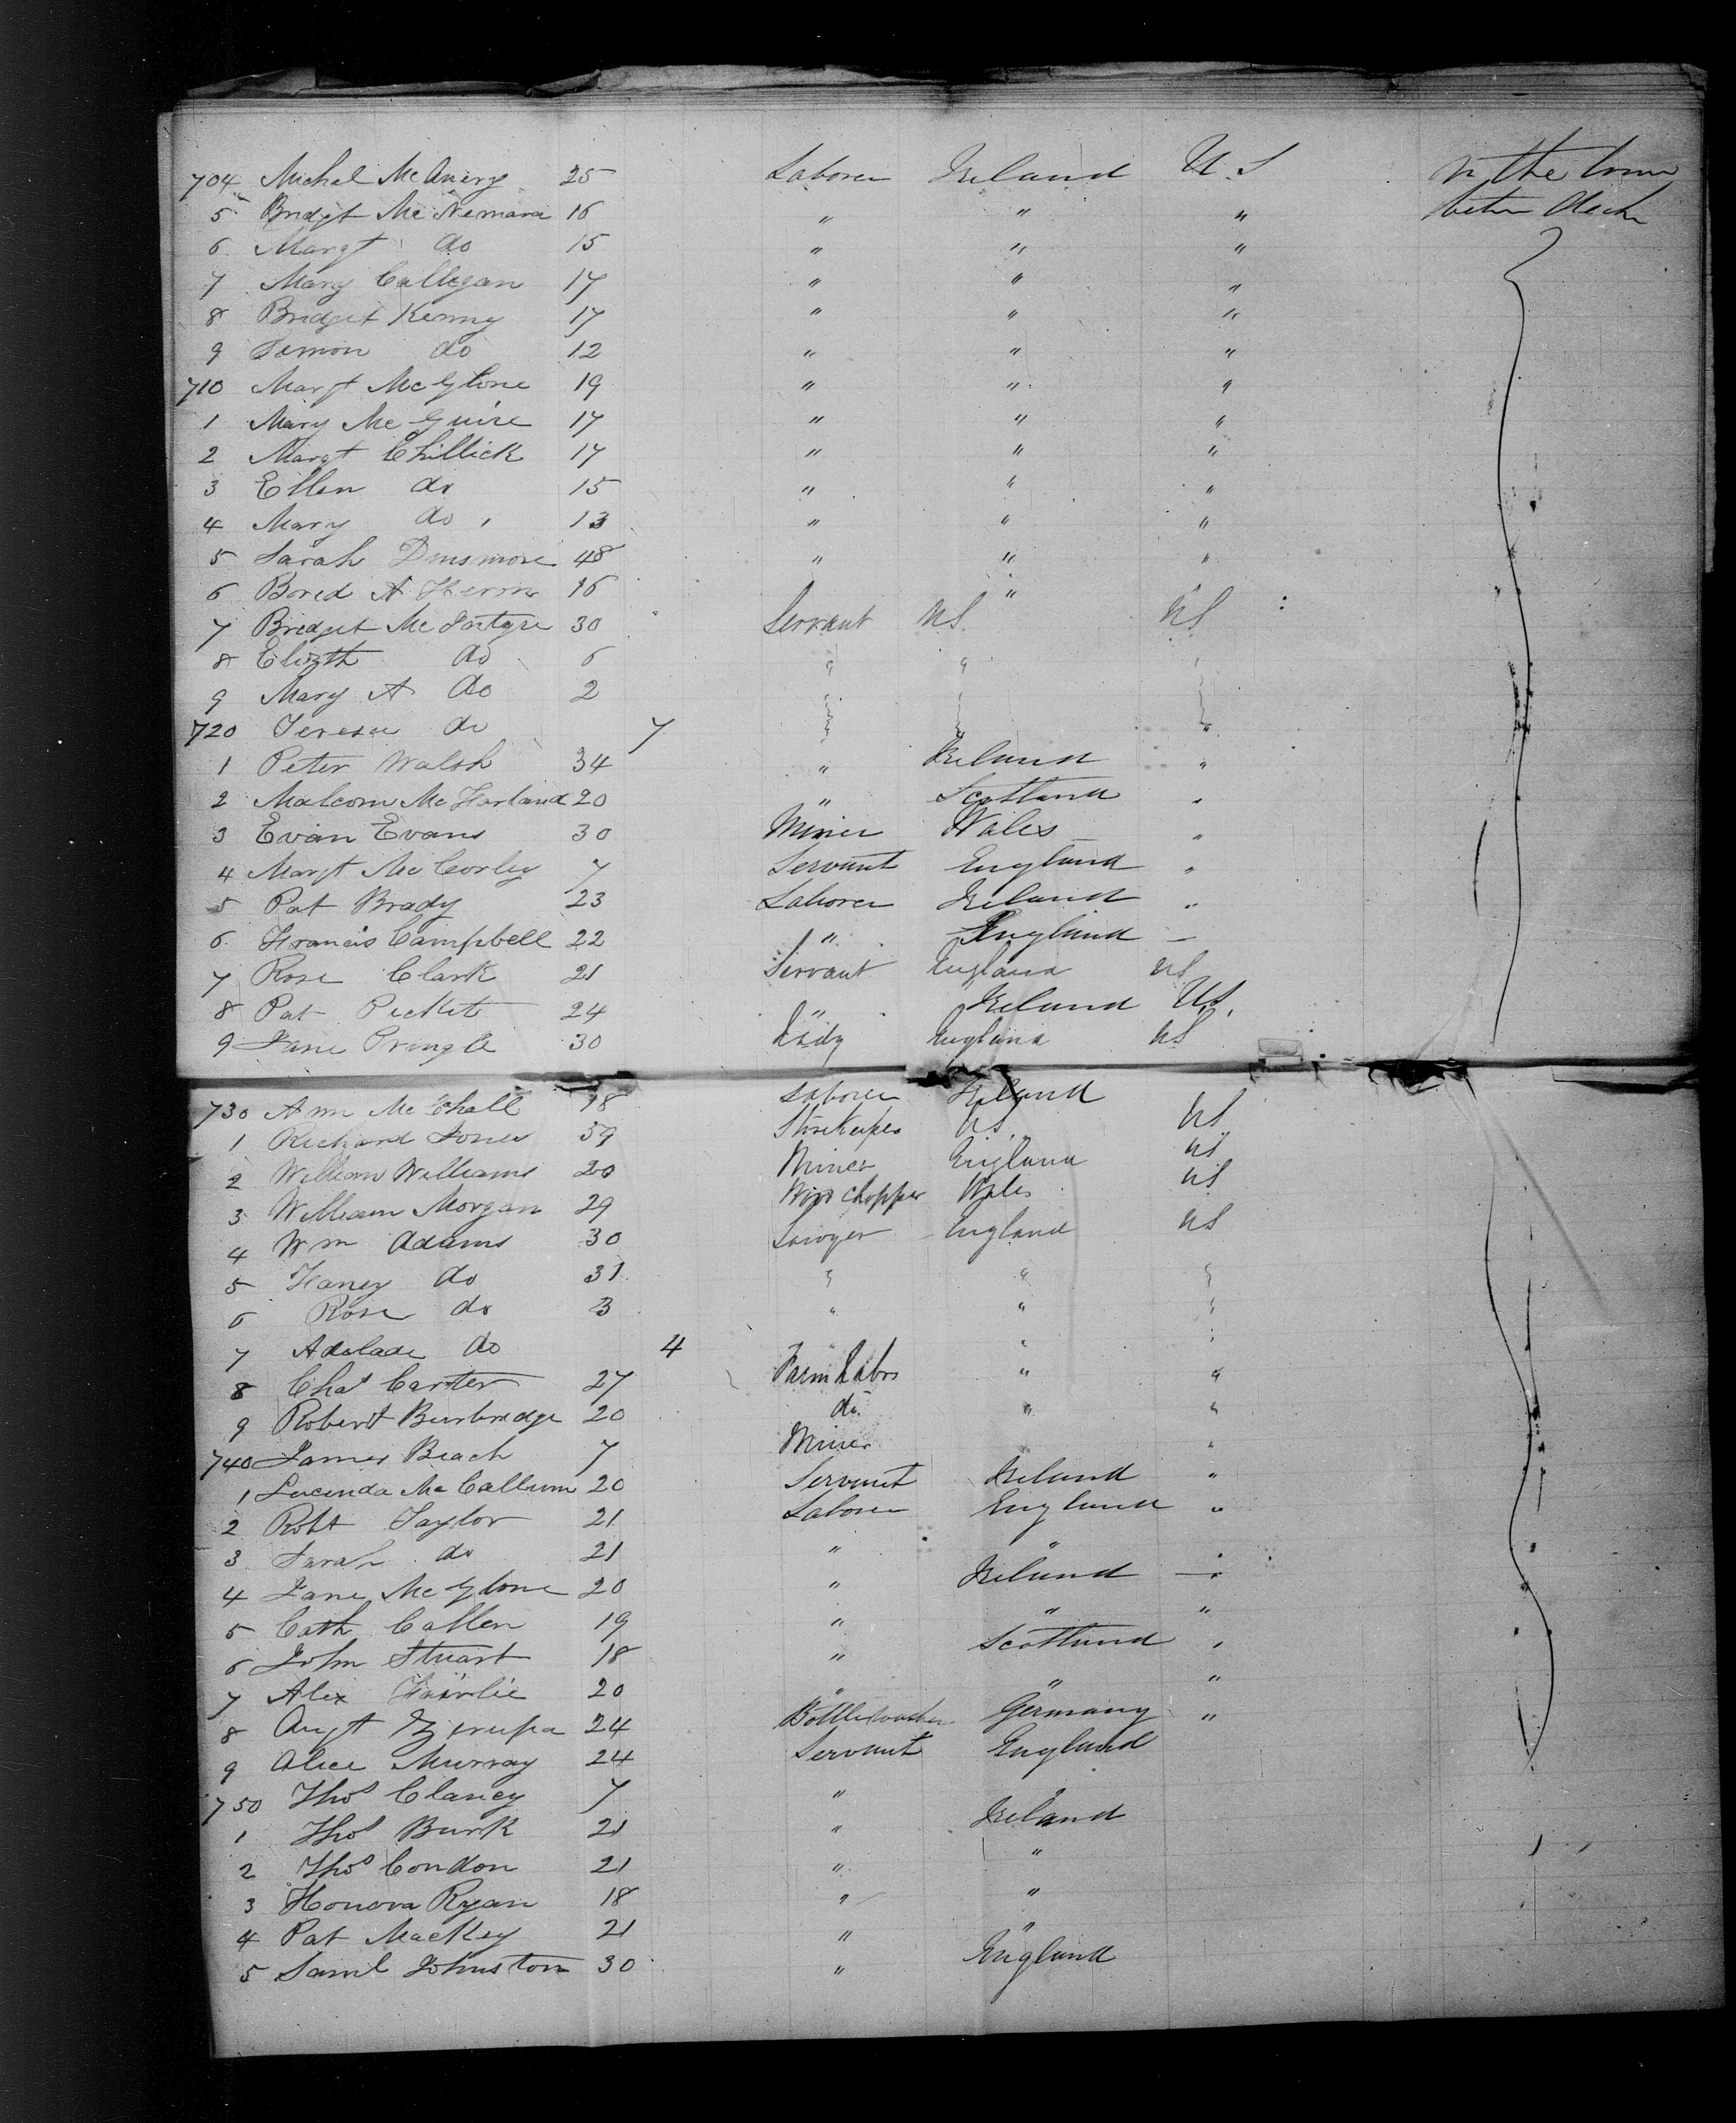 704 Michel McAnery 25 Laborer Ireland U.S in the lower
5 Bridgt McNemara 16 " " " between Decks
6 Margt do 15 " " "
7 Mary Calligan 17 " " "
8 Bridget Kenny 17 " " "
9 Semon do 12 " " "
710 Margt McGlone 19 " " "
1 Mary McGuire 17 " " "
2 Margt Chillick 17 " " "
3 Ellen do 15 " " "
4 Mary do 13 " " "
5 Sarah Dinsmore 48 " " "
6 A 16 " "
7 Bridget McIntyre 30 Servant US US
8 Elizth do 6 " " "
9 Mary A do 2 " " "
720 Teresa do 7 " " "
1 Peter Walsh 34 " Ireland "
2 Malcom McFarland 20 " Scotland "
3 Evan Evans 30 Miner Wales "
4 Margt McCorley 7 Servant England "
5 Pat Brady 23 Laborer Ireland "
6 Francis Campbell 22 " England "
7 Rose Clark 21 Servant England US
8 Pat Pickett 24 " Ireland US.
9 Jane Pringle 30 Lady England US
730 Ann 18 Laborer Ireland
1 Richard Jones 39 Storekeeper US US
2 William Williams 20 Miner England US
3 William Morgan 29 Wood chopper Wales US
4 Wm Adams 30 Sawyer England US
5 Haney do 31 " " "
6 Rose do 3 " " "
7 Adelade do 4 " " "
8 Chas Carter 27 Farm Labor " "
9 Robert Burbridge 20 do " "
740 James Beach 7 Miner "
1 Lucinda McCallum 20 Servant Ireland "
2 Robt Taylor 21 Laborer England "
3 Sarah do 21 " " "
4 Jane McGlone 20 " Ireland "
5 Cath Callen 19 " " "
6 John Stuart 18 " Scotland "
7 Alex Fairlie 20 " " "
8 Augt 24 Bottlewasher Germany "
9 Alice Murray 24 Servant England
750 Thos Clancy 7 " "
1 Thos Burk 21 " Ireland
2 Thos Condon 21 " "
3 Honora Ryan 18 " "
4 Pat Mackey 21 " "
5 Saml Johnston 30 " England